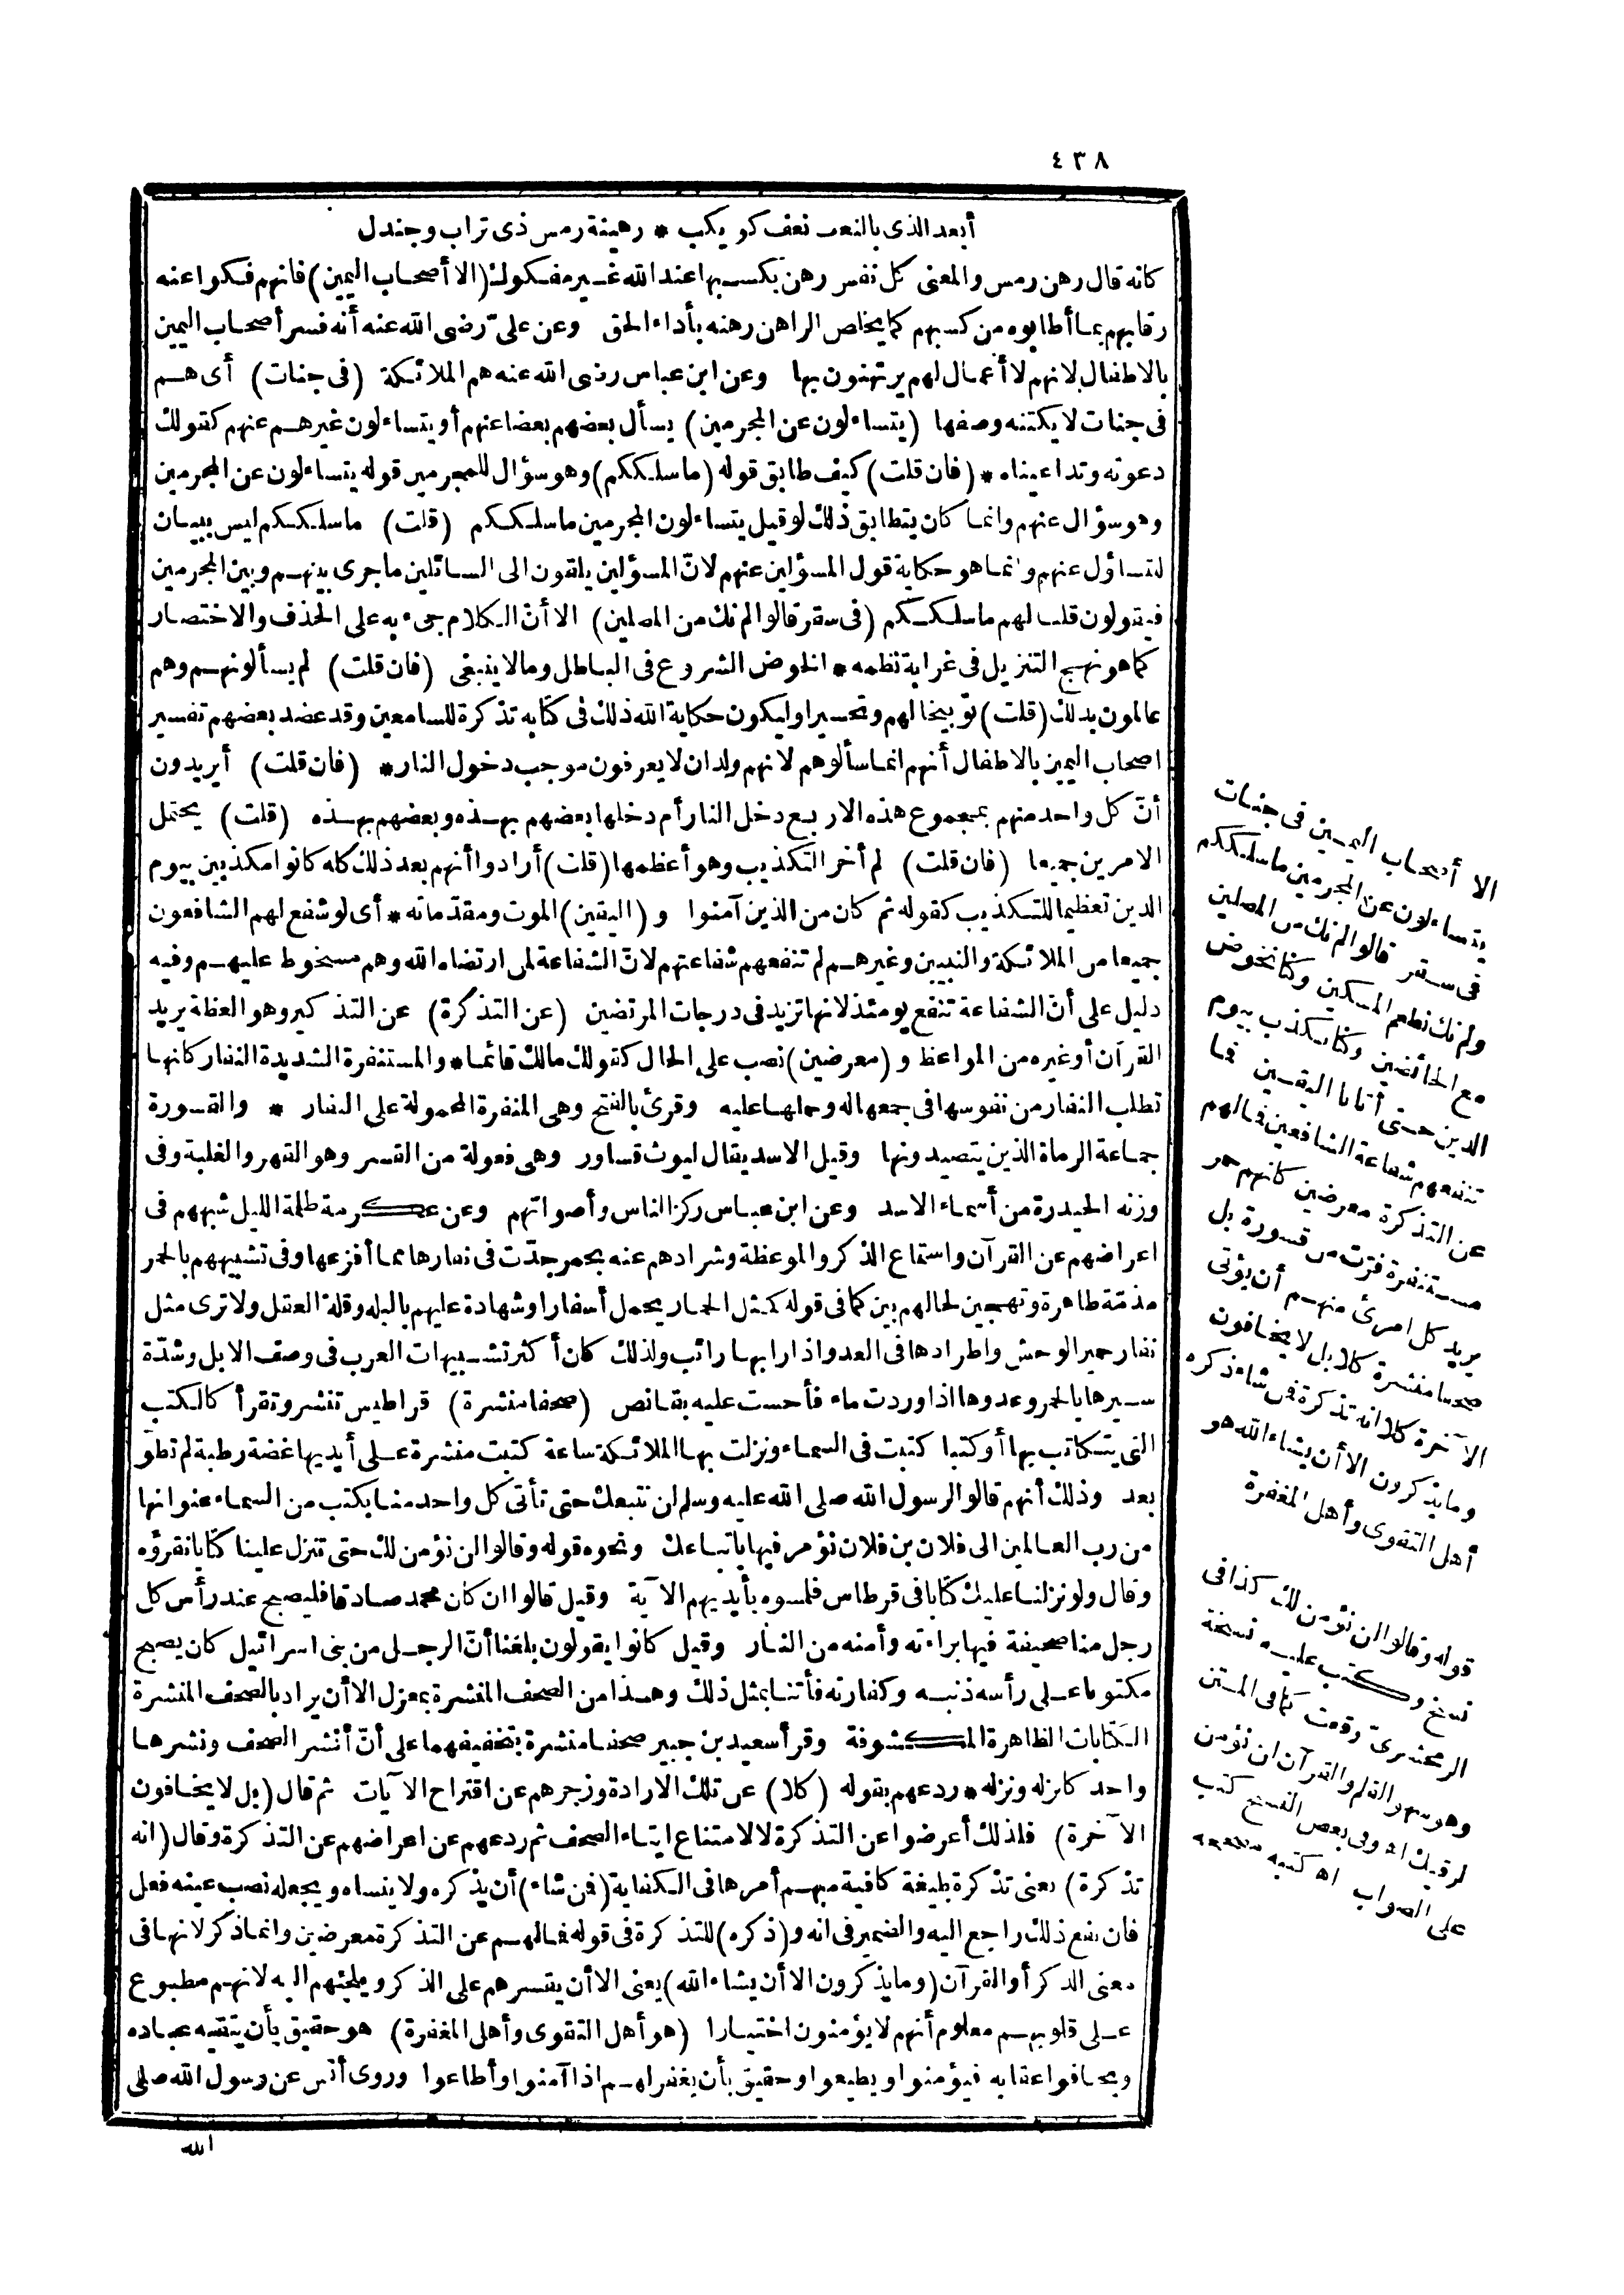 ٤٣٨
أبعد الذى بالنعف نعف كويكب * رهينة رمس ذى تراب وجندل
كانه قال رهن رمس والمعنى كل نفس رهن بكسبها عند الله غير مفكوك (الا أصحاب اليمين) فانهم فكوا عنه
رقابهم بما أطابوه من كسبهم كما يخلص الراهن رهنه بأداء الحق وعن علىّ رضى الله عنه أنه فسر أصحاب اليمين
بالاطفال لانهم لا أعمال لهم يرتهنون بها وعن ابن عباس رضى الله عنه هم الملائكة (فى جنات) أى هم
فى جنات لا يكتنه وصفها (يتساءلون عن المجرمين) يسأل بعضهم بعضا عنهم أو يتساءلون غيرهم عنهم كقولك
دعوته وتداعيناه * (فان قلت) كيف طابق قوله (ماسلككم) وهو سؤال للمجرمين قوله يتساءلون عن المجرمين
وهو سؤال عنهم وانما كان يتطابق ذلك لو قيل يتساءلون المجرمين ماسلككم (قلت) ماسلككم ليس ببيان
للتساؤل عنهم وانما هو حكاية قول المسؤلين عنهم لانّ المسؤلين يلقون الى السائلين ماجرى بينهم وبين المجرمين
فيقولون قلنا لهم ماسلككم (فى سقر قالوا لم نك من المصلين) الا أنّ الكلام جىء به على الحذف والاختصار
كما هو نهج التنزيل فى غرابة نظمه * الخوض الشروع فى الباطل ومالا ينبغى (فان قلت) لم يسألونهم وهم
عالمون بذلك (قلت) توبيخا لهم وتحسيرا وليكون حكاية الله ذلك فى كتابه تذكرة للسامعين وقد عضد بعضهم تفسير
اصحاب اليمين بالاطفال أنهم انما سألوهم لانهم ولدان لا يعرفون موجب دخول النار * (فان قلت) أيريدون
أنّ كل واحد منهم بمجموع هذه الاربع دخل النار أم دخلها بعضهم بهذه وبعضهم بهذه (قلت) يحتمل
الامرين جميعا (فان قلت) لم أخر التكذيب وهو أعظمها (قلت) أرادوا أنهم بعد ذلك كله كانوا مكذبين بيوم
الدين تعظيما للتكذيب كقوله ثم كان من الذين آمنوا و (اليقين) الموت ومقدّماته * أى لو شفع لهم الشافعون
جميعا من الملائكة والنبيين وغيرهم لم تنفعهم شفاعتهم لانّ الشفاعة لمن ارتضاه الله وهم مسخوط عليهم وفيه
دليل على أنّ الشفاعة تنفع يومئذ لانها تزيد فى درجات المرتضين (عن التذكرة) عن التذكير وهو العظة يريد
القرآن أو غيره من المواعظ و (معرضين) نصب على الحال كقولك مالك قائما * والمستنفرة الشديدة النفار كانها
تطلب النفار من نفوسها فى جمعها له وحملها عليه وقرئ بالفتح وهى المنفرة المحمولة على النفار * والقسورة
جماعة الرماة الذين يتصيدونها وقيل الاسد يقال ليوث قساور وهى فعولة من القسر وهو القهر والغلبة وفى
وزنه الحيدرة من أسماء الاسد وعن ابن عباس ركز الناس وأصواتهم وعن عكرمة ظلمة الليل شبههم فى
اعراضهم عن القرآن واستماع الذكر والموعظة وشرادهم عنه بحمر جدّت فى نفارها مما أفزعها وفى تشبيههم بالحمر
مذمّة ظاهرة وتهجين لحالهم بين كما فى قوله كمثل الحمار يحمل أسفارا وشهادة عليهم بالبله وقلة العقل ولا ترى مثل
نفار حمير الوحش واطرادها فى العدو اذا رابها رائب ولذلك كان أكثر تشبيهات العرب فى وصف الابل وشدّة
سيرها بالحمر وعدوها اذا وردت ماء فأحست عليه بقانص (صحفا منشرة) قراطيس تنشر وتقرأ كالكتب
التى يتكاتب بها أو كتبا كتبت فى السماء ونزلت بها الملائكة ساعة كتبت منشرة على أيديها غضة رطبة لم تطوّ
بعد وذلك أنهم قالوا لرسول الله صلى الله عليه وسلم لن نتبعك حتى تأتى كل واحد منا بكتب من السماء عنوانها
من رب العالمين الى فلان بن فلان نؤمر فيها باتباعك ونحوه قوله وقالوا لن نؤمن لك حتى تنزل علينا كتابا نقرؤه
وقال ولو نزلنا عليك كتابا فى قرطاس فلمسوه بأيديهم الآية وقيل قالوا ان كان محمد صادقا فليصبح عند رأس كل
رجل منا صحيفة فيها براءته وأمنه من النار وقيل كانوا يقولون بلغنا أنّ الرجل من بنى اسرائيل كان يصبح
مكتوبا على رأسه ذنبه وكفارته فأتنا بمثل ذلك وهذا من الصحف المنشرة بمعزل الا أن يراد بالصحف المنشرة
الكتابات الظاهرة المكشوفة وقرأ سعيد بن جبير صحفا منشرة بتخفيفهما على أنّ أنشر الصحف ونشرها
واحد كانزله ونزله * ردعهم بقوله (كلا) عن تلك الارادة وزجرهم عن اقتراح الآيات ثم قال (بل لا يخافون
الآخرة) فلذلك أعرضوا عن التذكرة لا لامتناع ايتاء الصحف ثم ردعهم عن اعراضهم عن التذكرة وقال (انه
تذكرة) يعنى تذكرة بليغة كافية مبهم أمرها فى الكفاية (فمن شاء) أن يذكره ولا ينساه ويجعله نصب عينه فعل
فان نفع ذلك راجع اليه والضمير فى انه و (ذكره) للتذكرة فى قوله فمالهم عن التذكرة معرضين وانما ذكر لانها فى
معنى الذكر أو القرآن (وما يذكرون الا أن يشاء الله) يعنى الا أن يقسرهم على الذكر ويلجئهم اليه لانهم مطبوع
على قلوبهم معلوم أنهم لا يؤمنون اختيارا (هو أهل التقوى وأهل المغفرة) هو حقيق بأن يتقيه عباده
ويخافوا عقابه فيؤمنوا ويطيعوا وحقيق بأن يغفر لهم اذا آمنوا وأطاعوا وروى أنس عن رسول الله صلى
الله
الا أصحاب اليمين فى جنات
يتساءلون عن المجرمين ماسلككم
فى سقر قالوا لم نك من المصلين
ولم نك نطعم المسكين وكنا نخوض
مع الخائضين وكنا نكذب بيوم
الدين حتى أتانا اليقين فما
تنفعهم شفاعة الشافعين فمالهم
عن التذكرة معرضين كانهم حمر
مستنفرة فرّت من قسورة بل
يريد كل امرئ منهم أن يؤتى
صحفا منشرة كلا بل لا يخافون
الآخرة كلا انه تذكرة فمن شاء ذكره
وما يذكرون الا أن يشاء الله هو
أهل التقوى وأهل المغفرة
قوله وقالوا لن نؤمن لك كذا فى
نسخ وكتب عليه نسخة
الزمخشرىّ وقعت كما فى المتن
وهو سهو القلم والقرآن لن نؤمن
لرقيك اه وفى بعض النسخ كتب
على الصواب اه كتبه مصححه